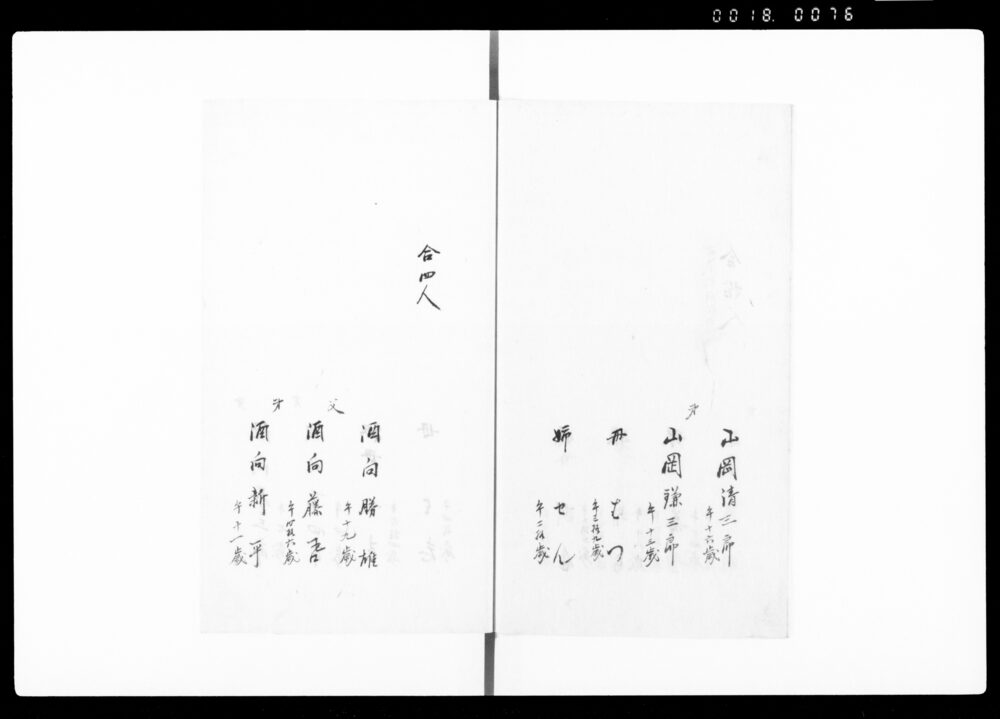 0018. 0076
山岡清三郎
午十六歳
弟
山岡鎌三郎
午十三歳
母
はつ
午三拾九歳
姉
せん
午二拾歳
合四人
酒向勝雄
午十九歳
父
酒向藤吾
午四拾六歳
弟
酒向新平
午十一歳